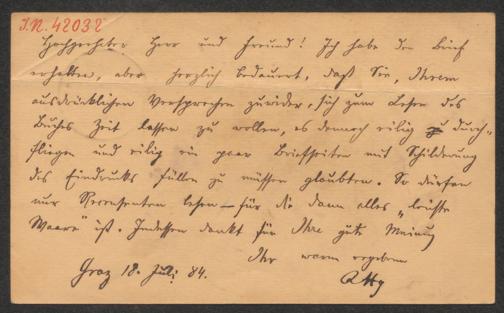 J.N. 42032
Hochgeehrter Herr und Freund! Ich habe den Brief
erhalten, aber herzlich bedauert, daß Sie, Ihrem
ausdrücklichen Versprechen zuwider, sich zum Lesen des
Buches Zeit lassen zu wollen, es dennoch eilig durch-
fliegen und eilig ein paar Briefseiten mit Schilderung
des Eindrucks füllen zu müssen glaubten. So dürfen
nur Recensenten lesen – für die dann alles „leichte
Waare“ ist. Indessen dankt für Ihre gute Meinung
Ihr warm ergebener
Graz 18. Juli 84.